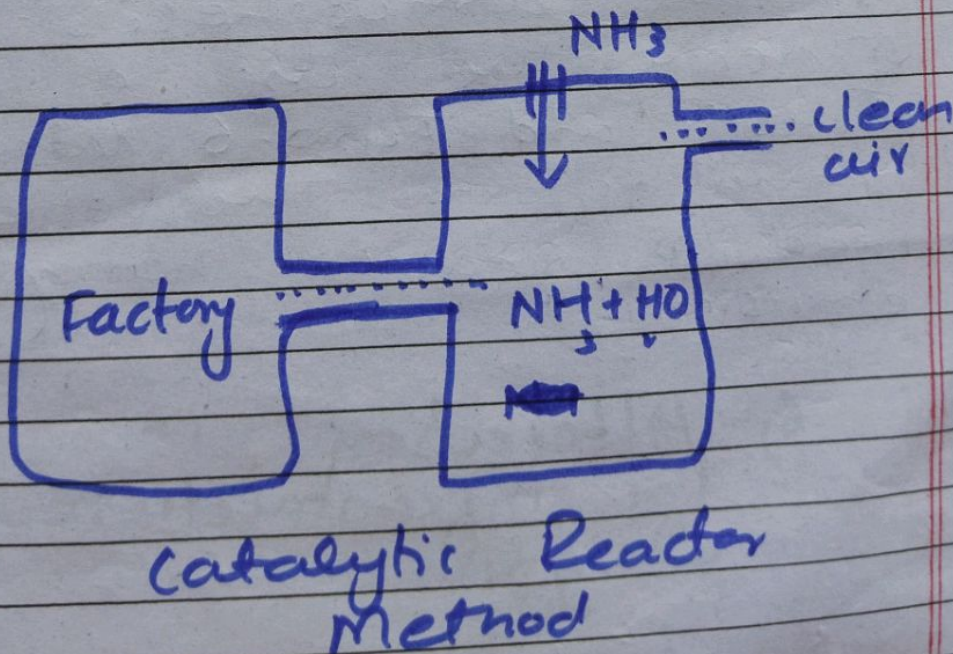 NH3
clean
air
Factory
NH3 + HO
Catalytic Reactor
Method